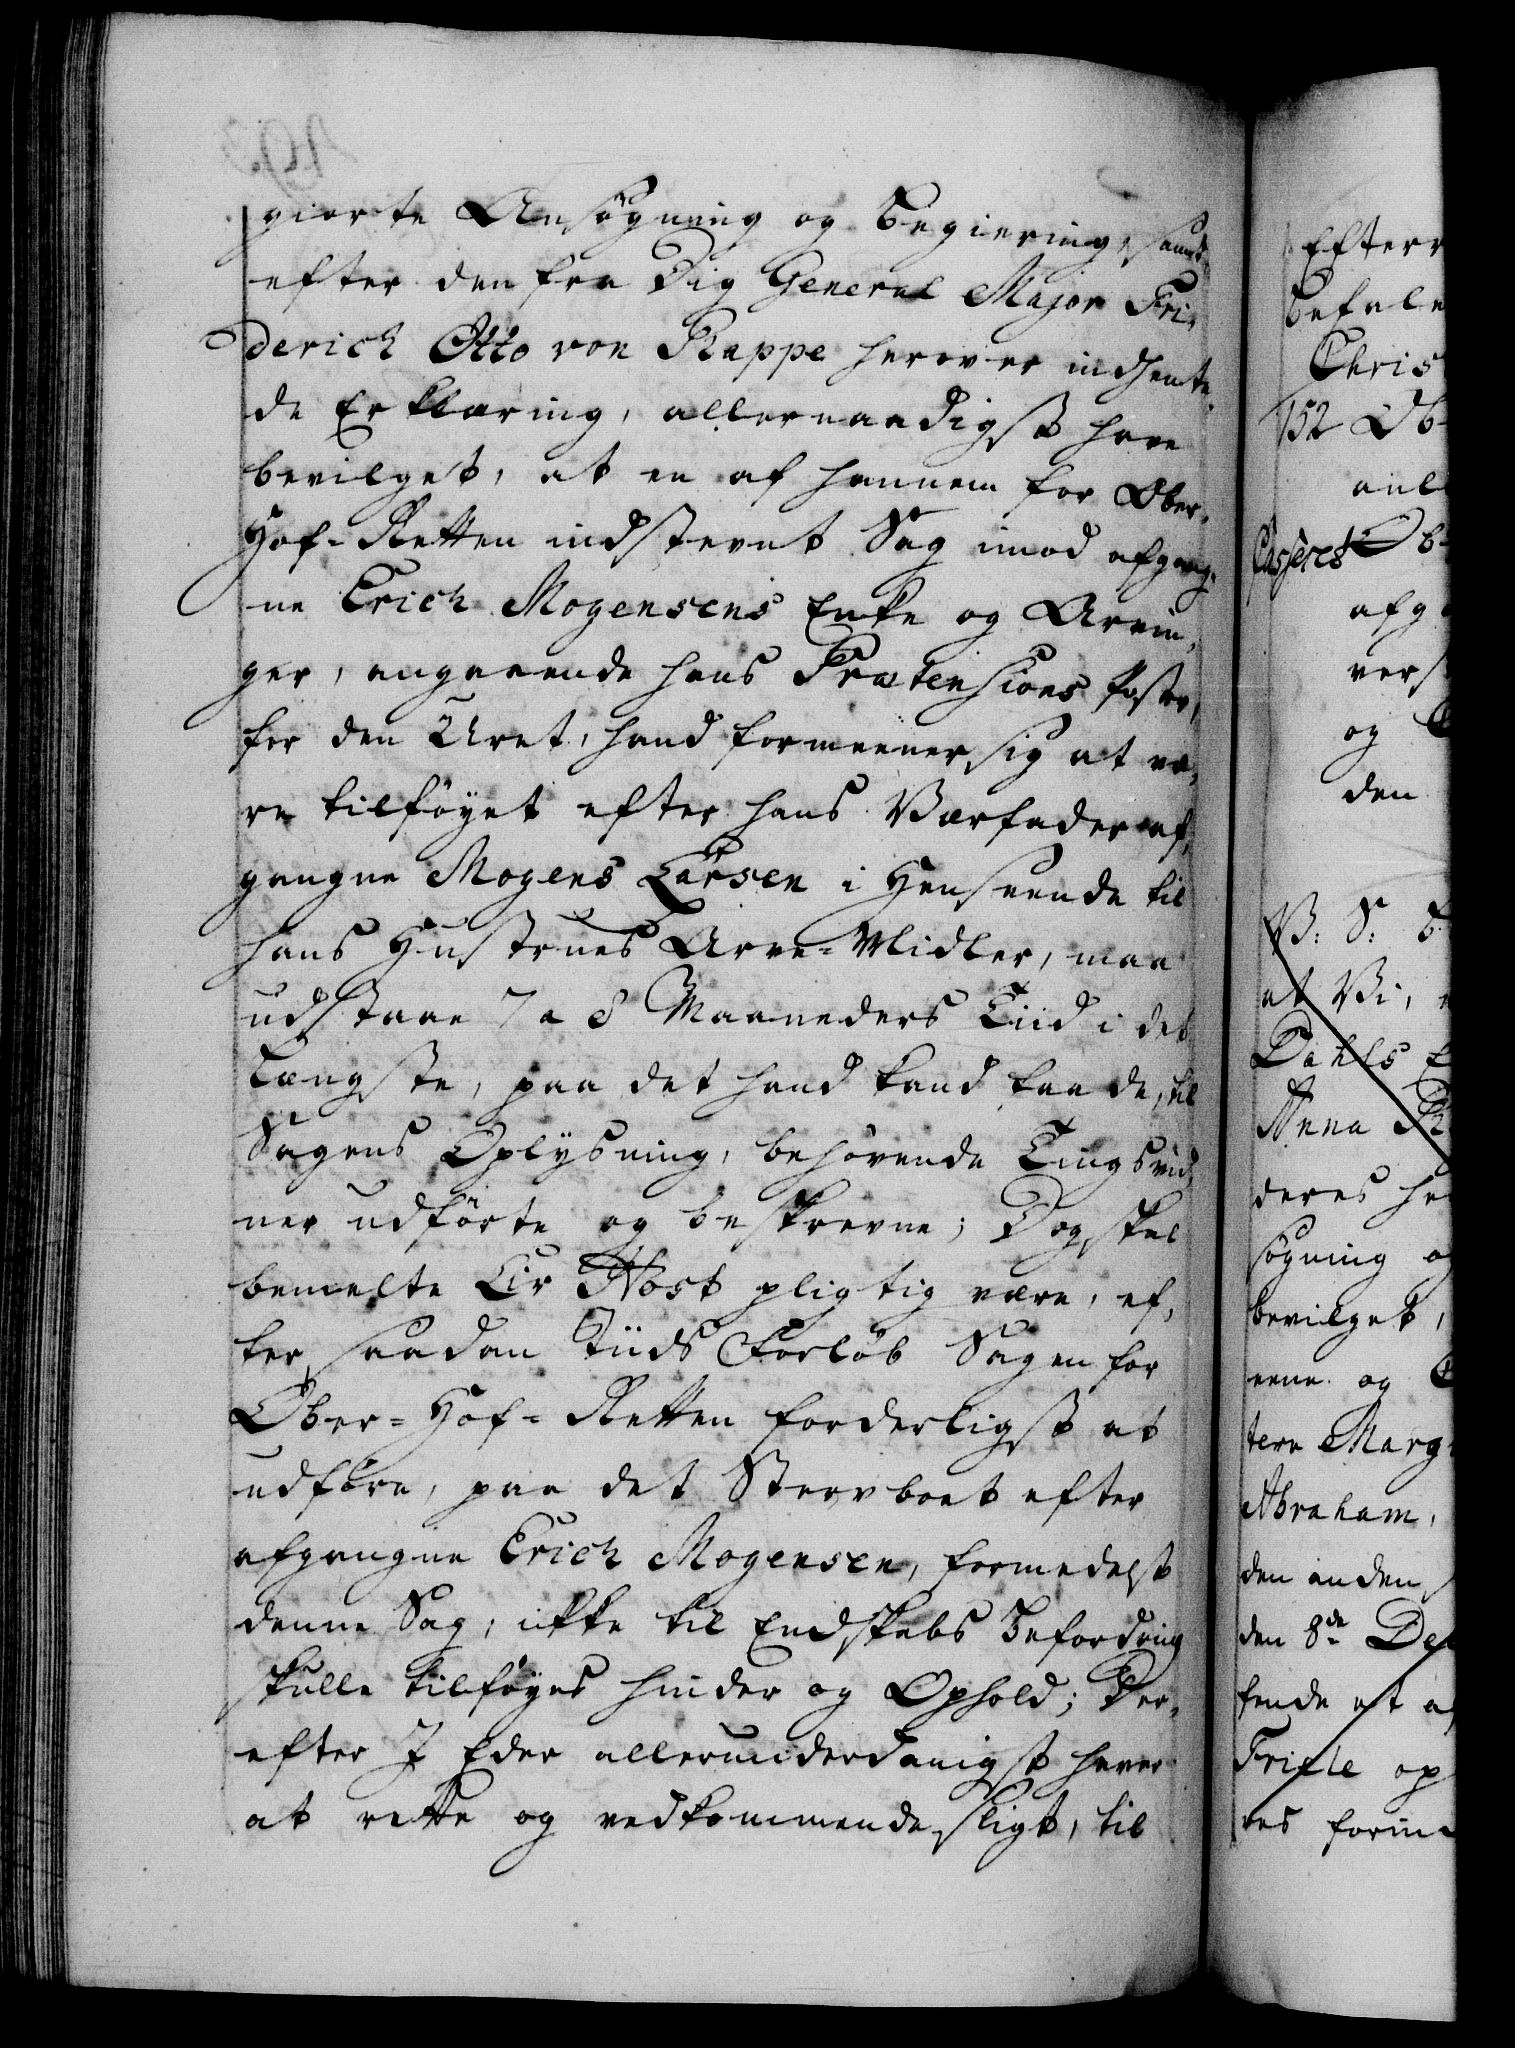 giorte Ansøgning og Begiering, samt
efter den fra Dig General Major Fri-
derich Otto von Rappe herover indhente-
de Erklæring, allernaadigst have
bevilget, at en af hannem for Ober-
Hof-Retten indstevnt Sag imod afgang-
ne Erich Mogensens Enke og Arvin-
ger, angaaende hans Prætensions Poster,
for den Uret, hand formeener sig at væ-
re tilføyet efter hans Værfader af-
gangne Mogens Larsen i Henseende til
hans Hustrues Arve-Midler, maa
udstaae 7 a 8 Maaneders Tiid i det
Længste, paa det hand kand faa de, til
Sagens Oplysning, behøvende Tingsvid-
ner udførte og beskrevne; Dog skal
bemelte Lir Nost pligtig være, ef-
ter saadan Tiids Forløb Sagen for
Ober-Hof-Retten forderligst at
udføre, paa det Stervboet efter
afgangne Erich Mogensen, formedelst
denne Sag, ikke til Endskabs Befordring
skulle tilføyes hinder og Ophold; Der-
efter I Eder allerunderdanigst haver
at rette og vedkommende sligt, til
Efterr
Befale
Chris
152 Ob
anl
Casseret Ob
afg
vers
og
den
V: S: B
at Vi,
Dahls E
Anna
deres he
søgning og
bevilget,
eene og
tere Marg
Abraham,
den anden
den 8de De
tende at a
Fridle op
res form